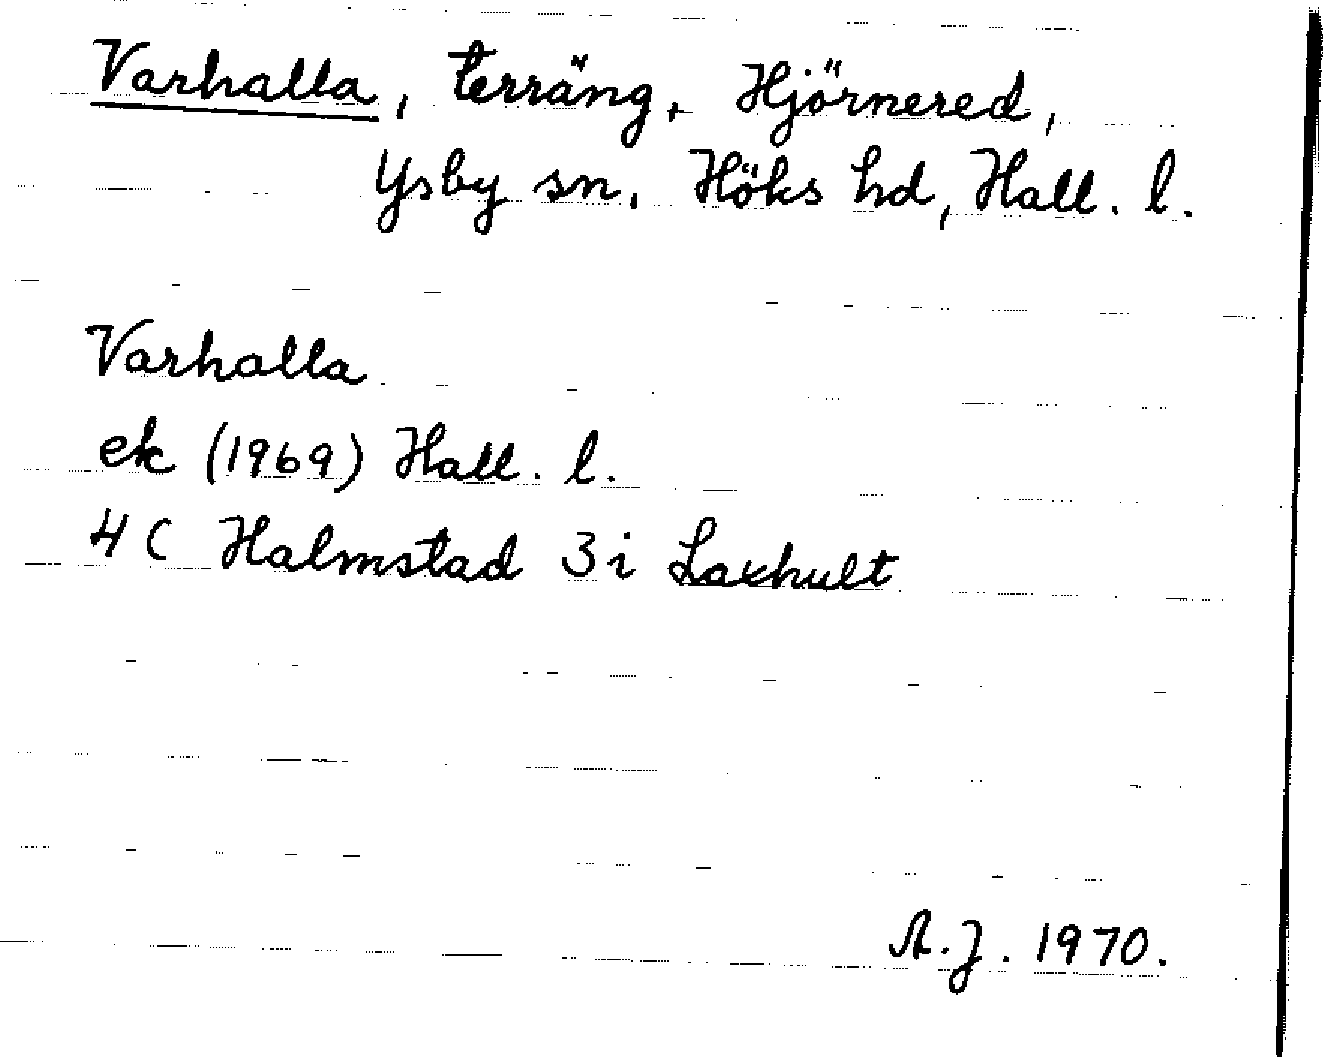 Varhalla, terräng, Hjörnered,
Ysby sn, Höks hd, Hall. l.
Varhalla
ek (1969) Hall. l.
4 C Halmstad 3 i Laxhult
A.J. 1970.